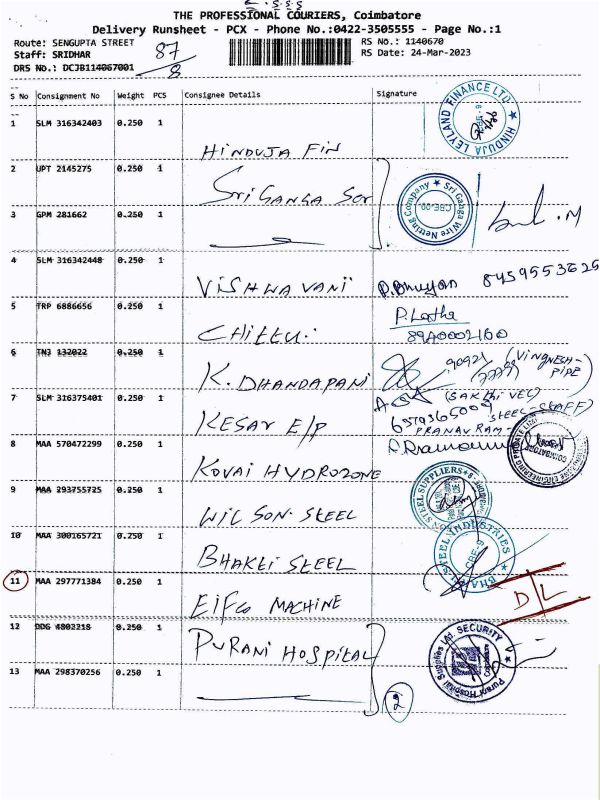 THE PROFESSIONAL COURIERS, Coimbatore
Delivery Runsheet - PCX - Phone No.:0422-3505555 - Page No.:1
Route: SENGUPTA STREET
RS No.: 1140670
Staff: SRIDHAR
87/8
RS Date: 24-Mar-2023
DRS No.: DCJB114067001
S No Consignment No Weight PCS Consignee Details Signature
1 SLM 316342403 0.250 1 HINDUJA FIN
HINDUJA LEYLAND FINANCE LTD
2 UPT 2145275 0.250 1 SRI GANGA
Sri Ganga Wire Netting Company
3 GPM 281662 0.250 1
4 SLM 316342448 0.250 1 VISHWAVANI
5 TRP 6886656 0.250 1
P. Latha
6 TN3 132022 0.250 1 K. DHANDAPANI
(VINGNESH-PIPE)
7 SLM 316375401 0.250 1 KESAV E/P
(SAKTHI VEL)
STEEL-STAFF)
PRANAV RAM
8 MAA 570472299 0.250 1 KOVAI HYDROZONE
COIMBATORE
9 MAA 293755725 0.250 1 WILSON STEEL
STEEL SUPPLIERS
10 MAA 300165721 0.250 1 BHAKTI STEEL
STEEL INDUSTRIES
CBE-9
11 MAA 297771384 0.250 1 EIFCO MACHINE
D/L
12 DDG 4803218 0.250 1 PURANI HOSPITAL
Purani Hospital Supplies SECURITY
13 MAA 298370256 0.250 1
2